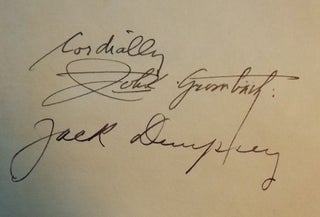 Cordially
John Grombach.
Jack Dempsey